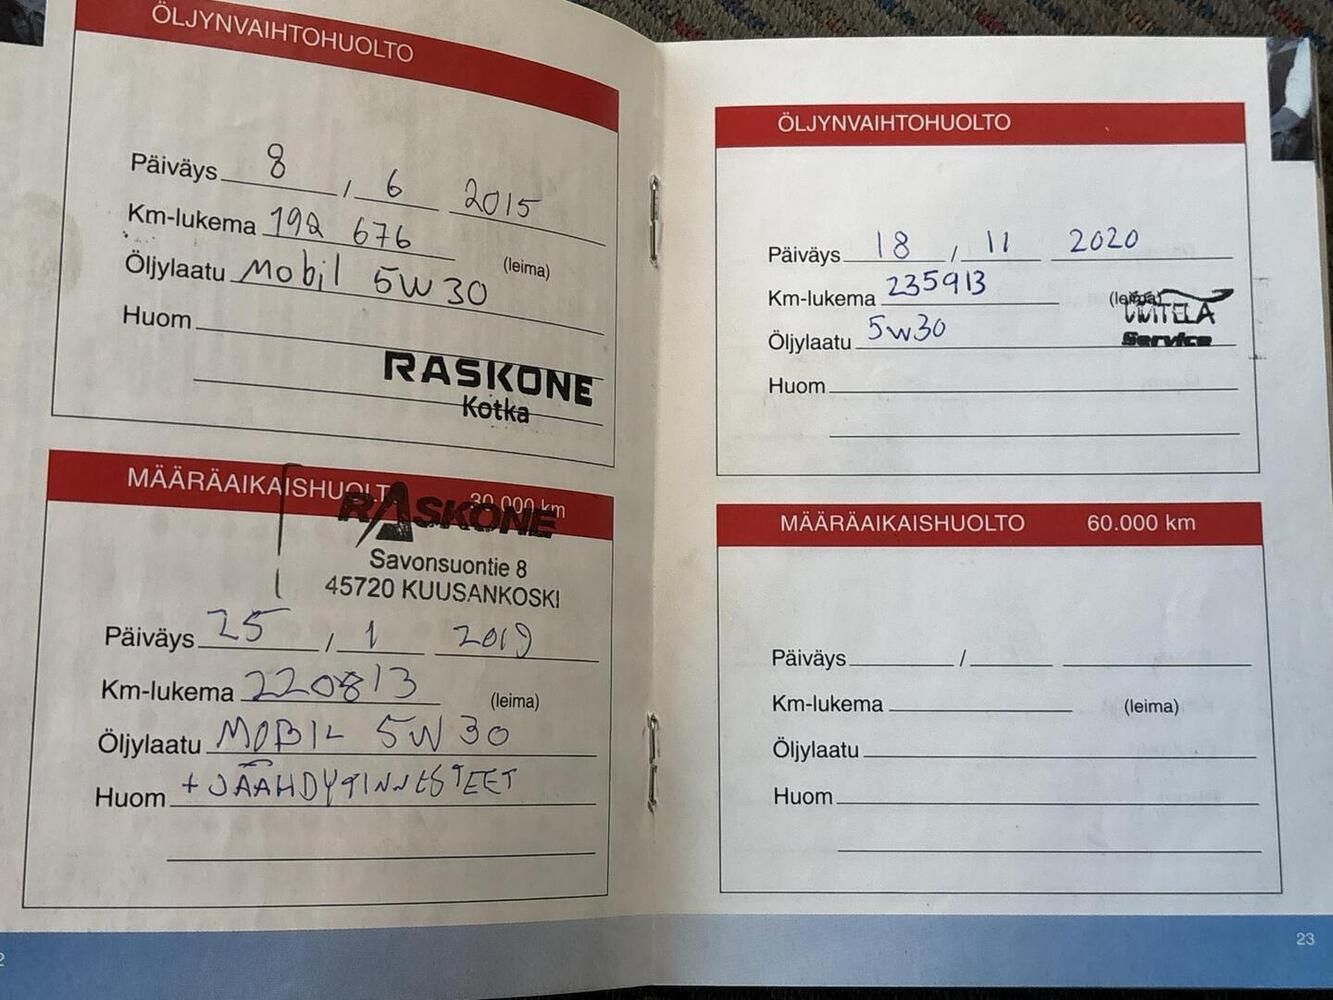 ÖLJYNVAIHTOHUOLTO
Päiväys 8 / 6 2015
Km-lukema 192 676
(leima)
Öljylaatu Mobil 5W30
Huom
RASKONE
Kotka
MÄÄRÄAIKAISHUOLTO 30.000 km
RASKONE
Savonsuontie 8
45720 KUUSANKOSKI
Päiväys 25 / 1 2019
Km-lukema 220813
(leima)
Öljylaatu MOBIL 5W30
Huom + JÄÄHDYTINNESTEET
2
ÖLJYNVAIHTOHUOLTO
Päiväys 18 / 11 2020
Km-lukema 235913
(leima)
Öljylaatu 5w30
Service
Huom
MÄÄRÄAIKAISHUOLTO 60.000 km
Päiväys /
Km-lukema
(leima)
Öljylaatu
Huom
23